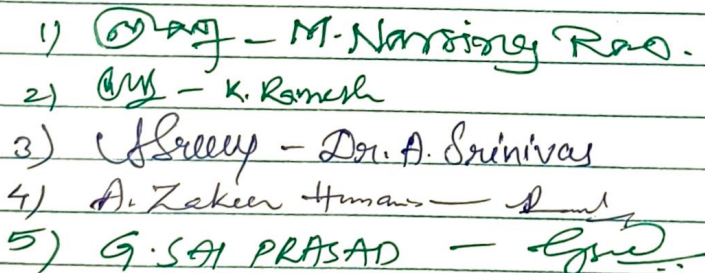 1) - M. Narsing Rao.
2) - K. Ramesh
3) - Dr. A. Srinivas
4) A. Zakeer -
5) G. SAI PRASAD -